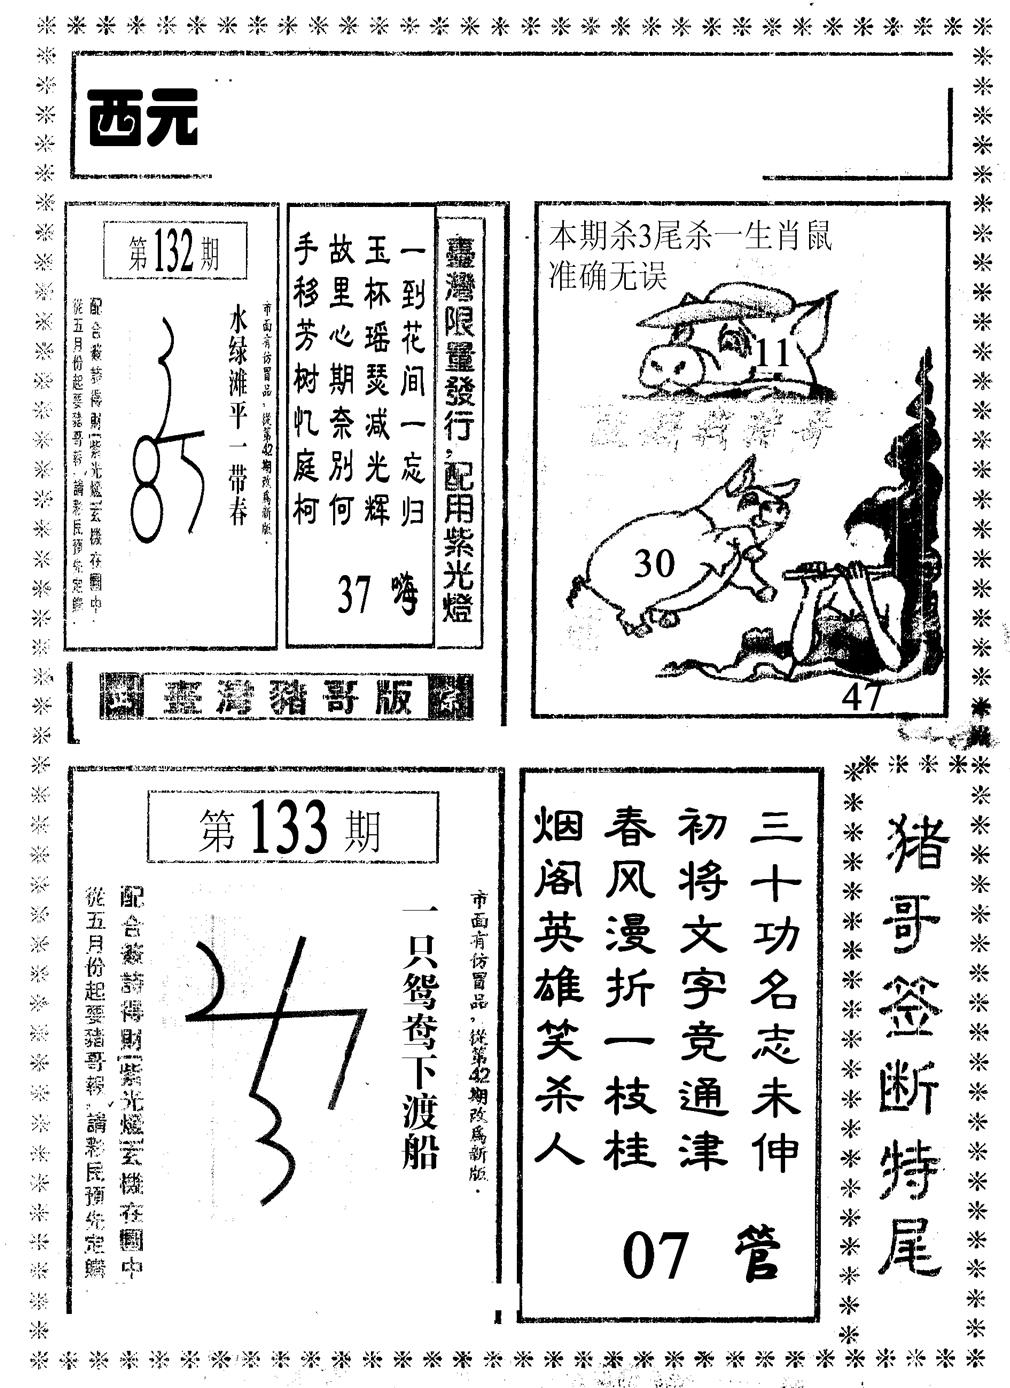 西元
第132期
水绿滩平一带春
市面有仿冒品，從第42期改爲新版．
配合籤詩得財(紫光燈)玄機在圖中．
從五月份起要豬哥報，請彩民預先定購．
臺灣限量發行，配用紫光燈
一到花间一忘归
玉杯瑶瑟减光辉
故里心期奈别何
手移芳树忆庭柯
37 嗨
臺灣豬哥版
本期杀3尾杀一生肖鼠
准确无误
11
30
47
第133期
一只鸳鸯下渡船
市面有仿冒品，從第42期改爲新版．
配合籤詩得財(紫光燈)玄機在圖中
從五月份起要豬哥報，請彩民預先定購
三十功名志未伸
初将文字竞通津
春风漫折一枝桂
烟阁英雄笑杀人
07 管
猪哥签断特尾